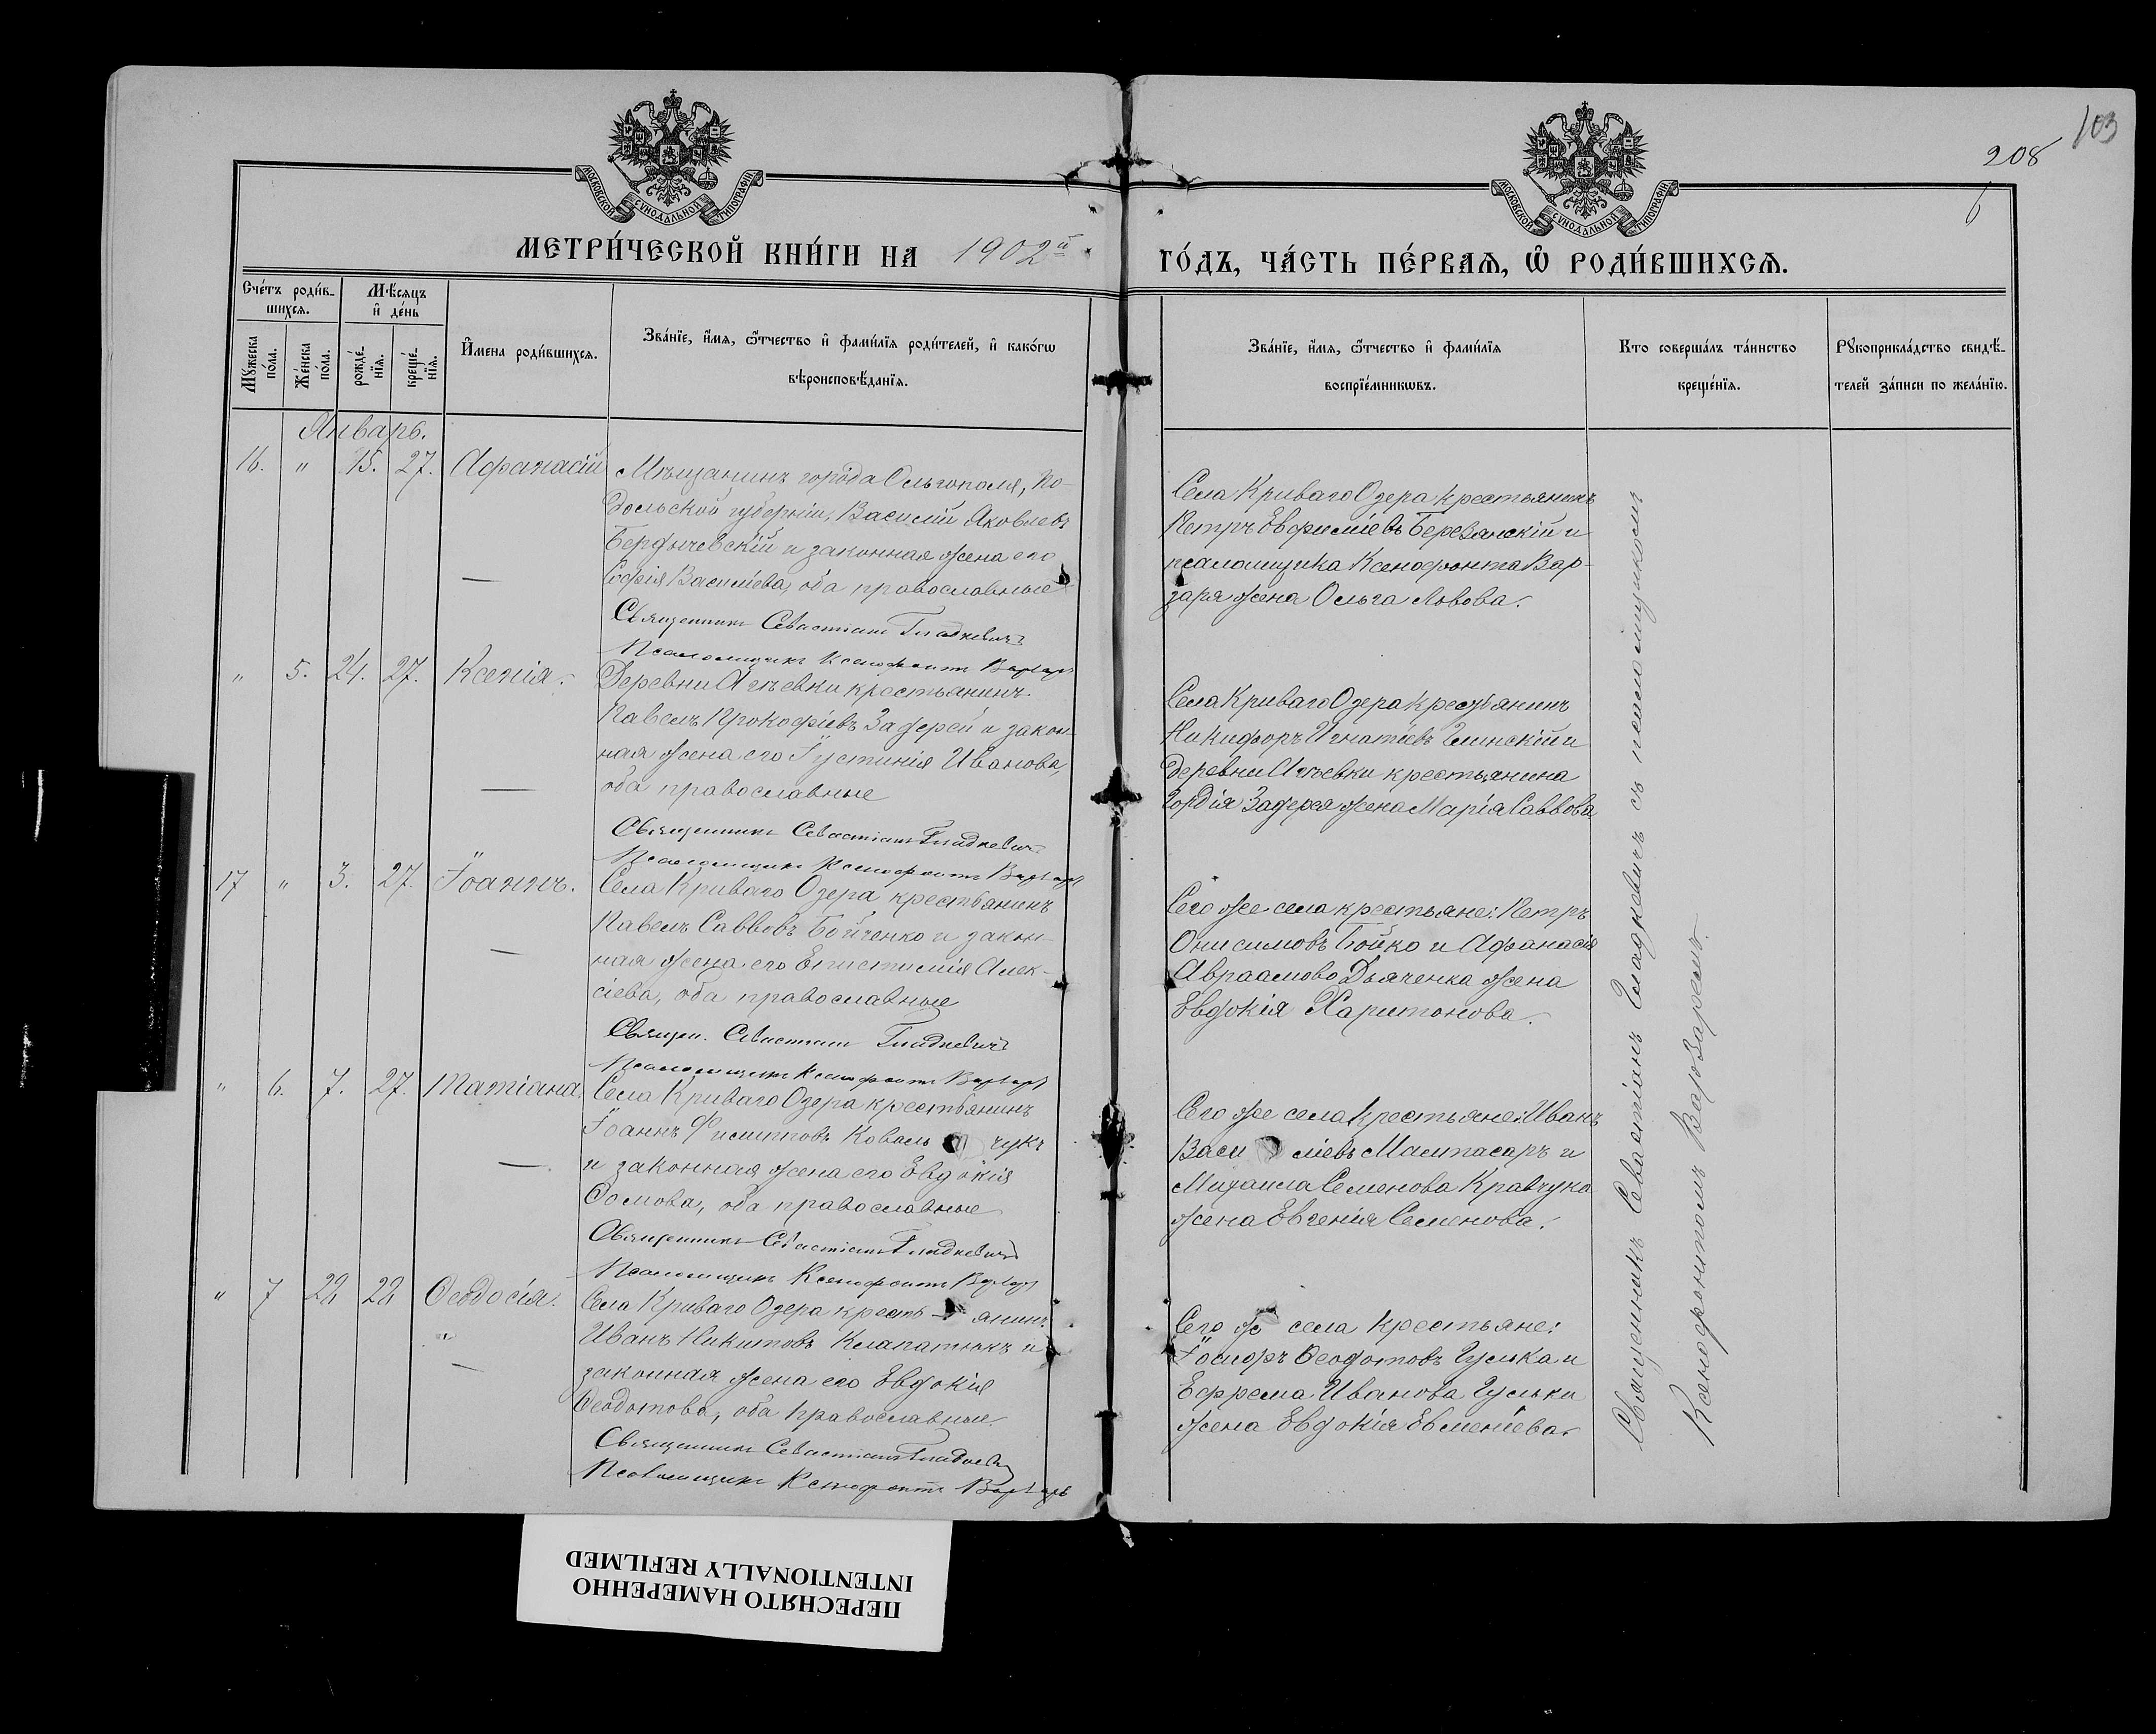 103
208
6
МОСКОВСКОЙ СѴНОДАЛЬНОЙ ТИПОГРАФІИ
МОСКОВСКОЙ СѴНОДАЛЬНОЙ ТИПОГРАФІИ
МЕТРИ́ЧЕСКОЙ КНИ́ГИ НА 1902й
ГО́ДЪ, ЧА́СТЬ ПЕ́РВАѦ, Ѡ҆ РОДИ́ВШИХСѦ.
Сче́тъ роди́в-
шихсѧ.
Мѣ́сѧцъ
и҆ де́нь
Мꙋ́жеска
по́ла.
Же́нска
по́ла.
рожде́-
нїѧ.
креще́-
нїѧ.
И҆мена роди́вшихсѧ.
Зва́нїе, и҆́мѧ, ѻ҆́тчество и҆ фами́лїѧ роди́телей, и҆ како́гѡ
вѣроисповѣ́данїѧ.
Зва́нїе, и҆́мѧ, ѻ҆́тчество и҆ фами́лїѧ
воспрїе́мникѡвъ.
Кто соверша́лъ та́инство
креще́нїѧ.
Рꙋкоприкла́дство свидѣ́-
телей за́писи по жела́нїю.
Январь.
16. " 15. 27. Афанасій
Мѣщанинъ города Ольгополя, По-
дольской губерніи, Василій Яковлевъ
Бердычевскій и законная жена его
Софія Васильева, оба православные
Священникъ Севастіанъ Гладкевичъ
Псаломщикъ Ксенофонтъ Варзарь
Села Криваго Озера крестьянинъ
Петръ Евфиміевъ Березанскій и
псаломщика Ксенофонта Вар-
заря жена Ольга Львова.
" 5. 24. 27. Ксенія.
Деревни Агѣевки крестьянинъ
Павелъ Прокофіевъ Задерей и закон-
ная жена его Іустинія Иванова,
оба православные
Священникъ Севастіанъ Гладкевичъ
Псаломщикъ Ксенофонтъ Варзарь
Села Криваго Озера крестьянинъ
Никифоръ Игнатіевъ Глинскій и
деревни Агѣевки крестьянина
Гордія Задерея жена Марія Саввова
17 " 3. 27. Іоаннъ.
Села Криваго Озера крестьянинъ
Павелъ Саввовъ Бойченко и закон-
ная жена его Епистимія Алек-
сіева, оба православные
Священ. Севастіанъ Гладкевичъ
Псаломщикъ Ксенофонтъ Варзарь
Сего же села крестьяне: Петръ
Онисимовъ Бойко и Афанасія
Авраамова Дьяченка жена
Евдокія Харитонова.
" 6. 7. 27. Татіана.
Села Криваго Озера крестьянинъ
Іоаннъ Филипповъ Коваль чукъ
и законная жена его Евдокія
Ѳомова, оба православные
Священникъ Севастіанъ Гладкевичъ
Псаломщикъ Ксенофонтъ Варзарь
Сего же села крестьяне: Иванъ
Васи ліевъ Маштасаръ и
Михаила Семенова Кравчука
жена Евгенія Семенова.
" 7 22 28 Ѳеодосія.
Села Криваго Озера кресть янинъ
Иванъ Никитовъ Клапатнюкъ и
законная жена его Евдокія
Ѳеодотова, оба православные
Священникъ Севастіанъ Гладкевичъ
Псаломщикъ Ксенофонтъ Варзарь
Сего же села крестьяне:
Іосифъ Ѳеодотовъ Гулька и
Ефрема Иванова Гульки
жена Евдокія Евменіева.
Священникъ Севастіанъ Гладкевичъ съ псаломщикомъ
Ксенофонтомъ Варзаремъ.
ПЕРЕСНЯТО НАМЕРЕННО
INTENTIONALLY REFILMED